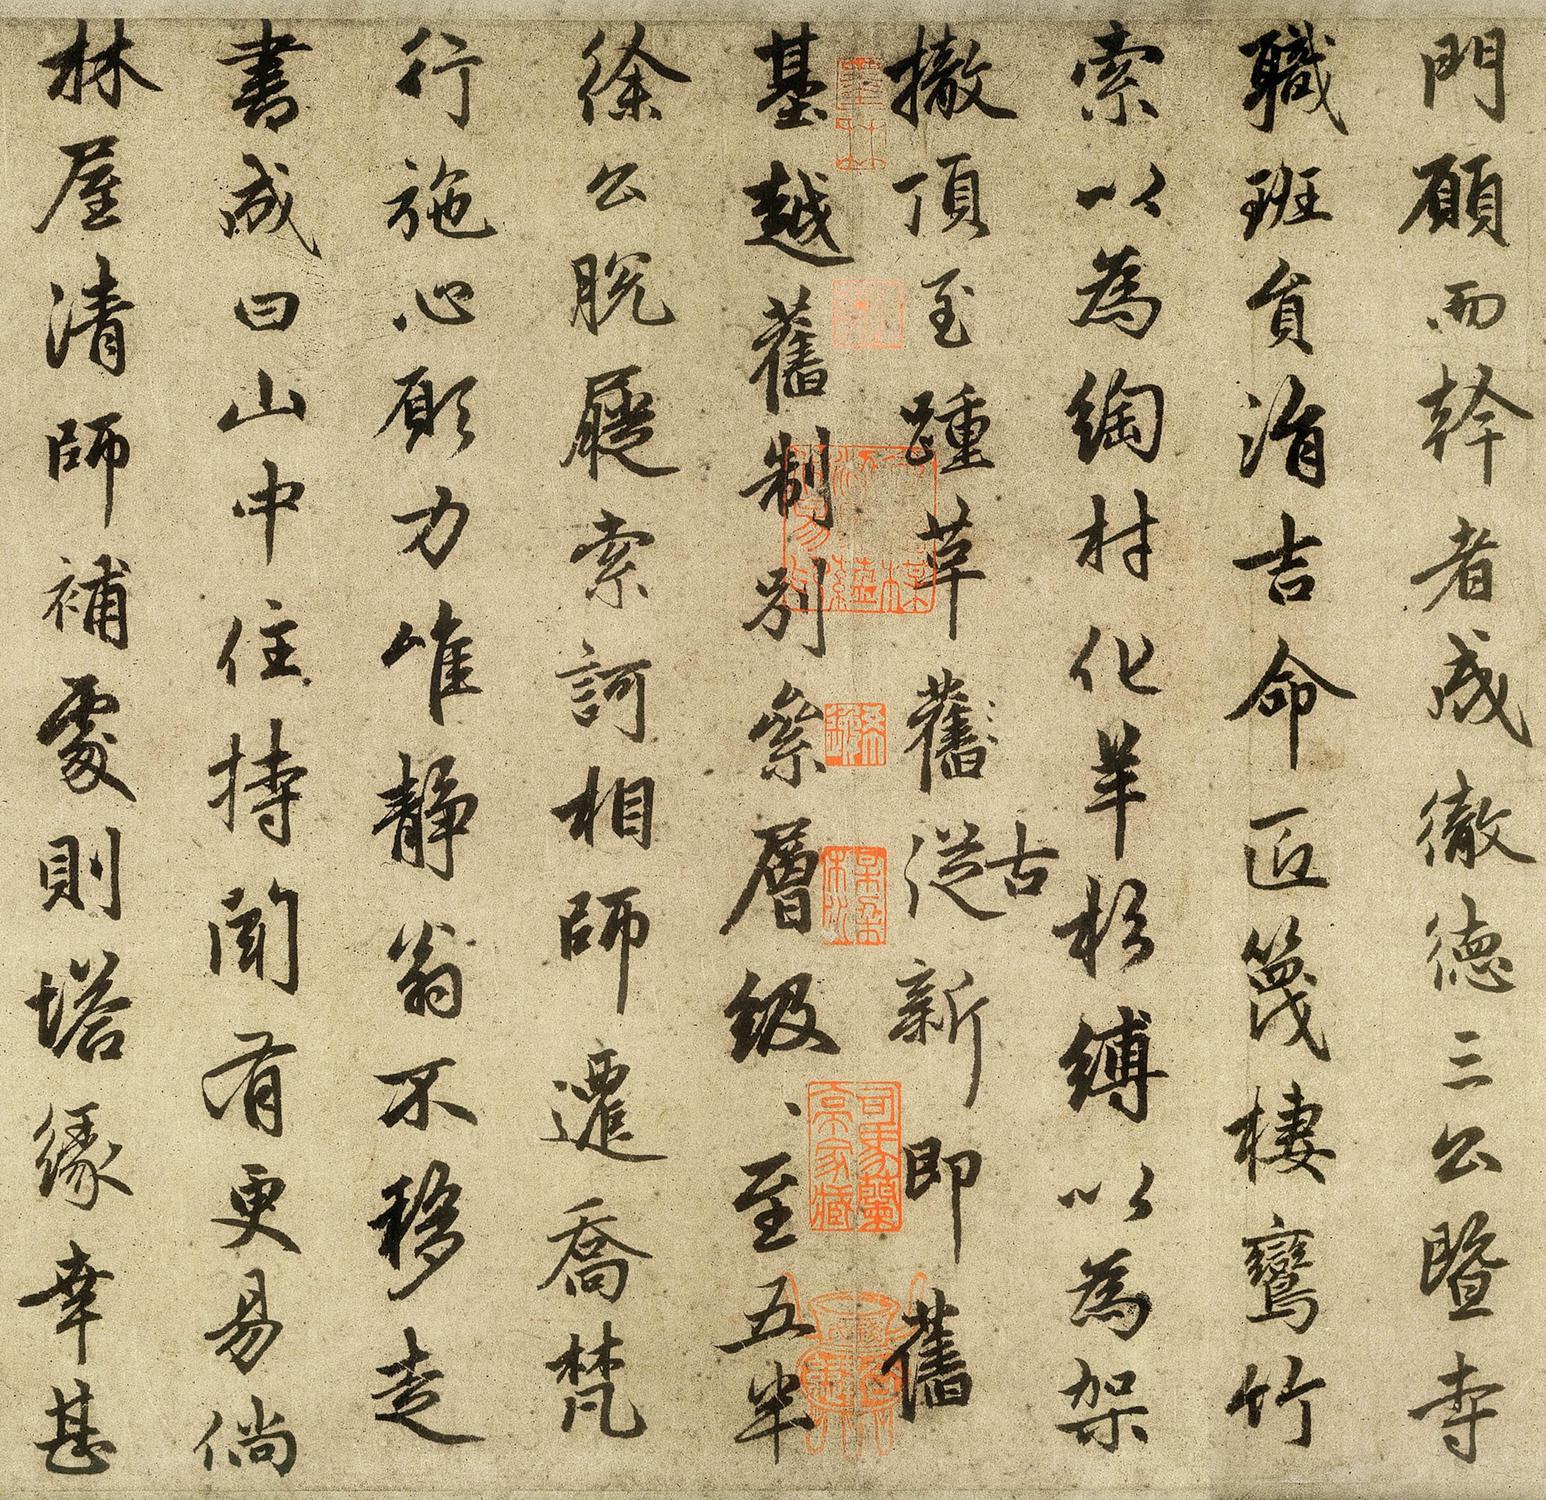 門願而幹者成徹德三公暨寺
職班員涓吉命匠篾棲鸞竹
索以為綯村化羊杉縛以為架
撤頂至踵革舊從古新即舊
基越舊制別絫層級、至五半
徐公脫屣索訶相師遷喬梵
行施心願力唯靜翁不移走
書成曰山中住持聞有更易倘
林屋清師補處則塔緣幸甚
司馬蘭亭家藏